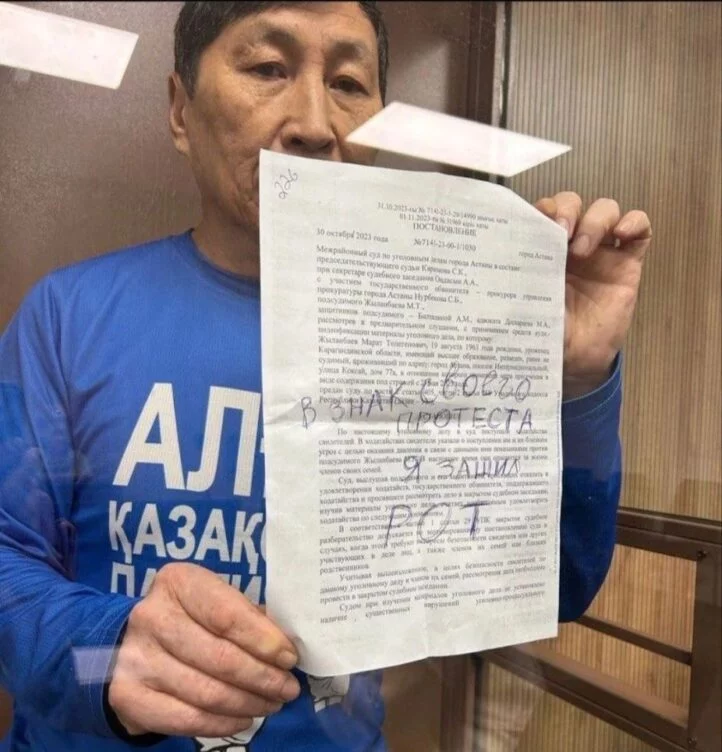 226
31.10.2023
01.11.2023
ПОСТАНОВЛЕНИЕ
30 октября 2023 года №7141-23-00-1/1030 город Астана
Межрайонный суд по уголовным делам города Астаны в составе:
председательствующего судьи Каримова С.К.,
при секретаре судебного заседания А.А.,
с участием государственного обвинителя – прокурора управления
прокуратуры города Астаны Нурбекова С.Б.,
подсудимого Жыланбаева М.Т.,
защитников подсудимого – Балпановой А.М., адвоката М.А.,
рассмотрев в предварительном слушании, с применением средств
видеофиксации материалы уголовного дела, по которому:
Жыланбаев Марат Толегенович, 19 августа 1963 года рождения, уроженец
Карагандинской области, имеющий высшее образование, ранее не
судимый, проживающий по адресу: город
улица Коксай, дом 77а, в отношении
виде содержания под стражей с
предан суду по части
Республики Казахстан
В ЗНАК СВОЕГО
ПРОТЕСТА
По настоящему делу в суд поступили ходатайства
свидетелей. В ходатайствах свидетели указали о поступлении им и их близким
угроз с целью оказания давления в связи с данными ими показаниями против
подсудимого Жыланбаева за жизнь
членов своих семей.
Я ЗАШИЛ
Суд, выслушав
удовлетворения ходатайств, государственного обвинителя, поддержавшего
ходатайства и просившего рассмотреть дело в закрытом судебном заседании,
изучив материалы удовлетворить
ходатайства по следующим
РОТ
В соответствии УПК закрытое судебное
разбирательство допускается по мотивированному постановлению суда в
случаях, когда этого требуют интересы безопасности свидетеля или других
участвующих в деле лиц, а также членов их семей или близких
родственников.
Учитывая вышеизложенное, в целях безопасности свидетелей по
данному уголовному делу и членов их семей, рассмотрение дела необходимо
провести в закрытом судебном заседании.
Судом при изучении материалов уголовного дела не установлено
наличие существенных нарушений уголовно-процессуального
АЛ
ҚАЗАҚ